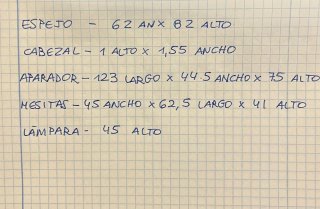 ESPEJO - 62 AN X 82 ALTO
CABEZAL - 1 ALTO X 1,55 ANCHO
APARADOR - 123 LARGO X 44.5 ANCHO X 75 ALTO
MESITAS - 45 ANCHO X 62,5 LARGO X 41 ALTO
LÁMPARA - 45 ALTO